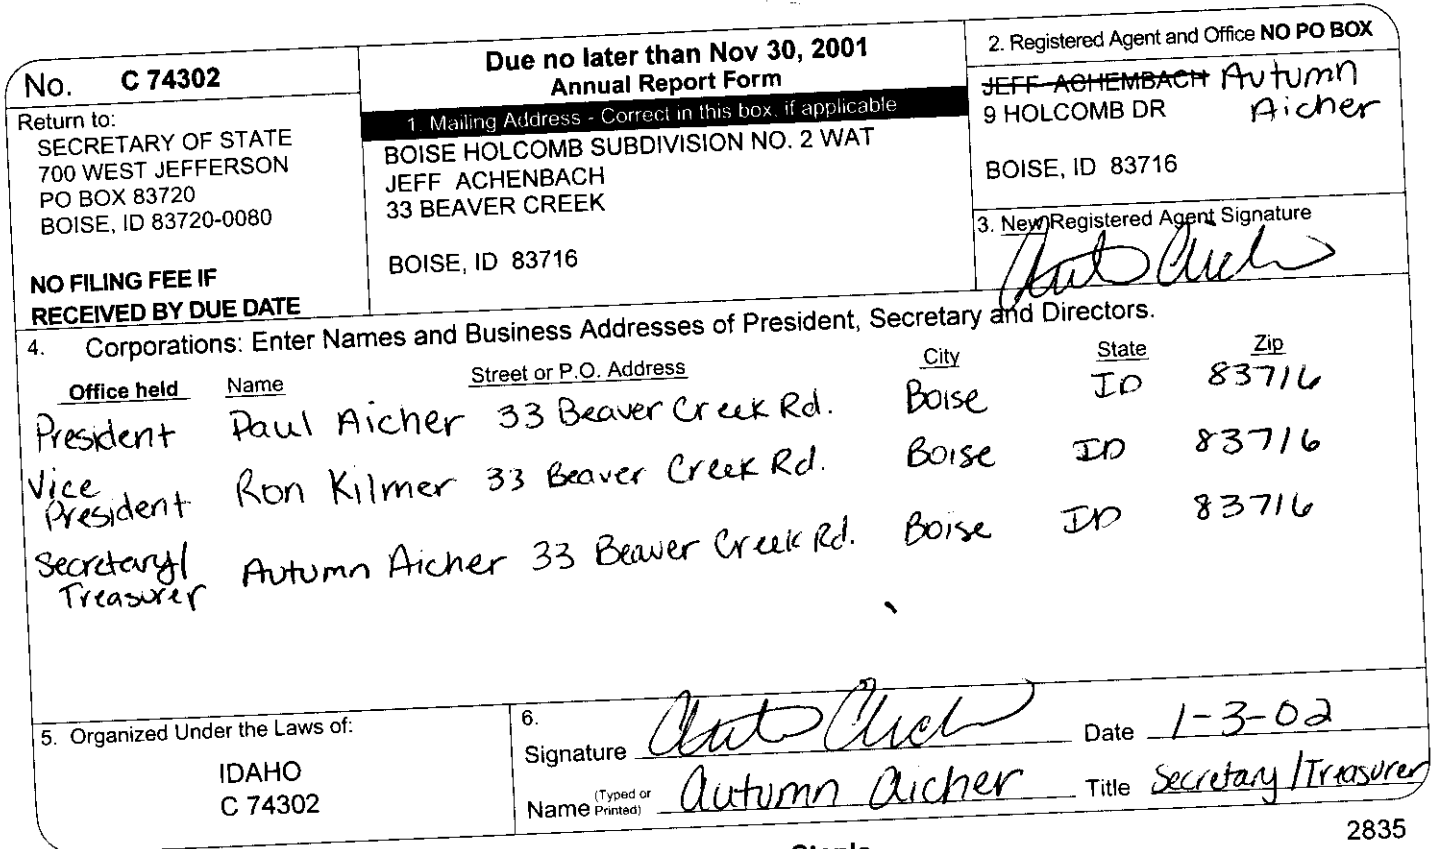 No. C 74302
Return to:
SECRETARY OF STATE
700 WEST JEFFERSON
PO BOX 83720
BOISE, ID 83720-0080
NO FILING FEE IF
RECEIVED BY DUE DATE
Due no later than Nov 30, 2001
Annual Report Form
1. Mailing Address - Correct in this box, if applicable
BOISE HOLCOMB SUBDIVISION NO. 2 WAT
JEFF ACHENBACH
33 BEAVER CREEK
BOISE, ID 83716
2. Registered Agent and Office NO PO BOX
JEFF ACHEMBACH Autumn
9 HOLCOMB DR Aicher
BOISE, ID 83716
3. New Registered Agent Signature
4. Corporations: Enter Names and Business Addresses of President, Secretary and Directors.
Office held Name Street or P.O. Address City State Zip
President Paul Aicher 33 Beaver Creek Rd. Boise ID 83716
Vice
President Ron Kilmer 33 Beaver Creek Rd. Boise ID 83716
Secretary/
Treasurer Autumn Aicher 33 Beaver Creek Rd. Boise ID 83716
5. Organized Under the Laws of:
IDAHO
C 74302
6.
Signature Date 1-3-02
Name (Typed or Printed) Autumn Aicher Title Secretary/Treasurer
2835